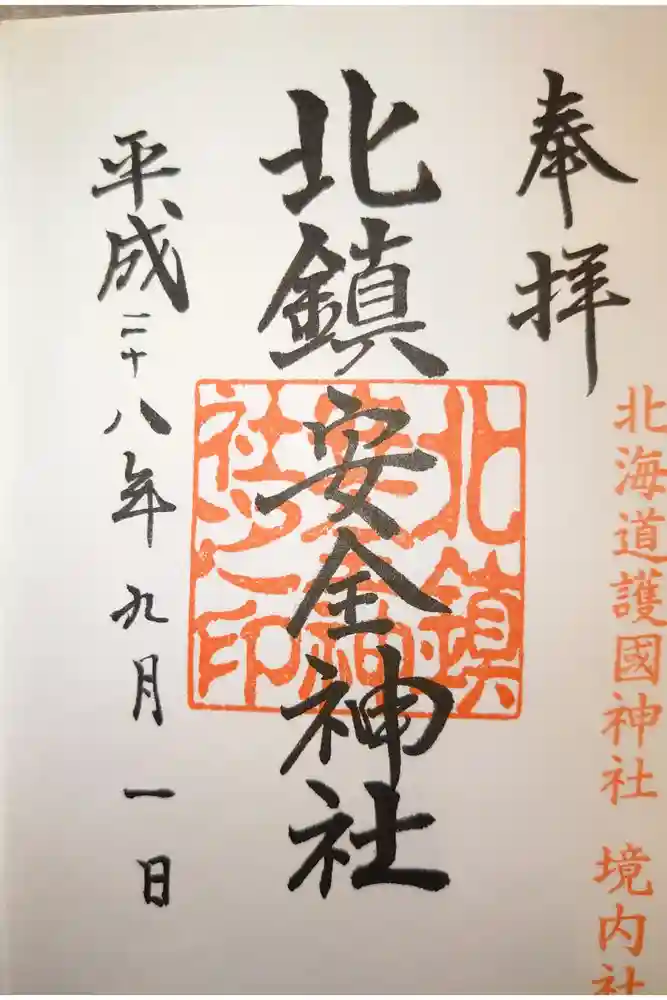 奉拝
北海道護國神社 境内社
北鎮安全神社
北鎮安全神社之印
平成二十八年九月一日